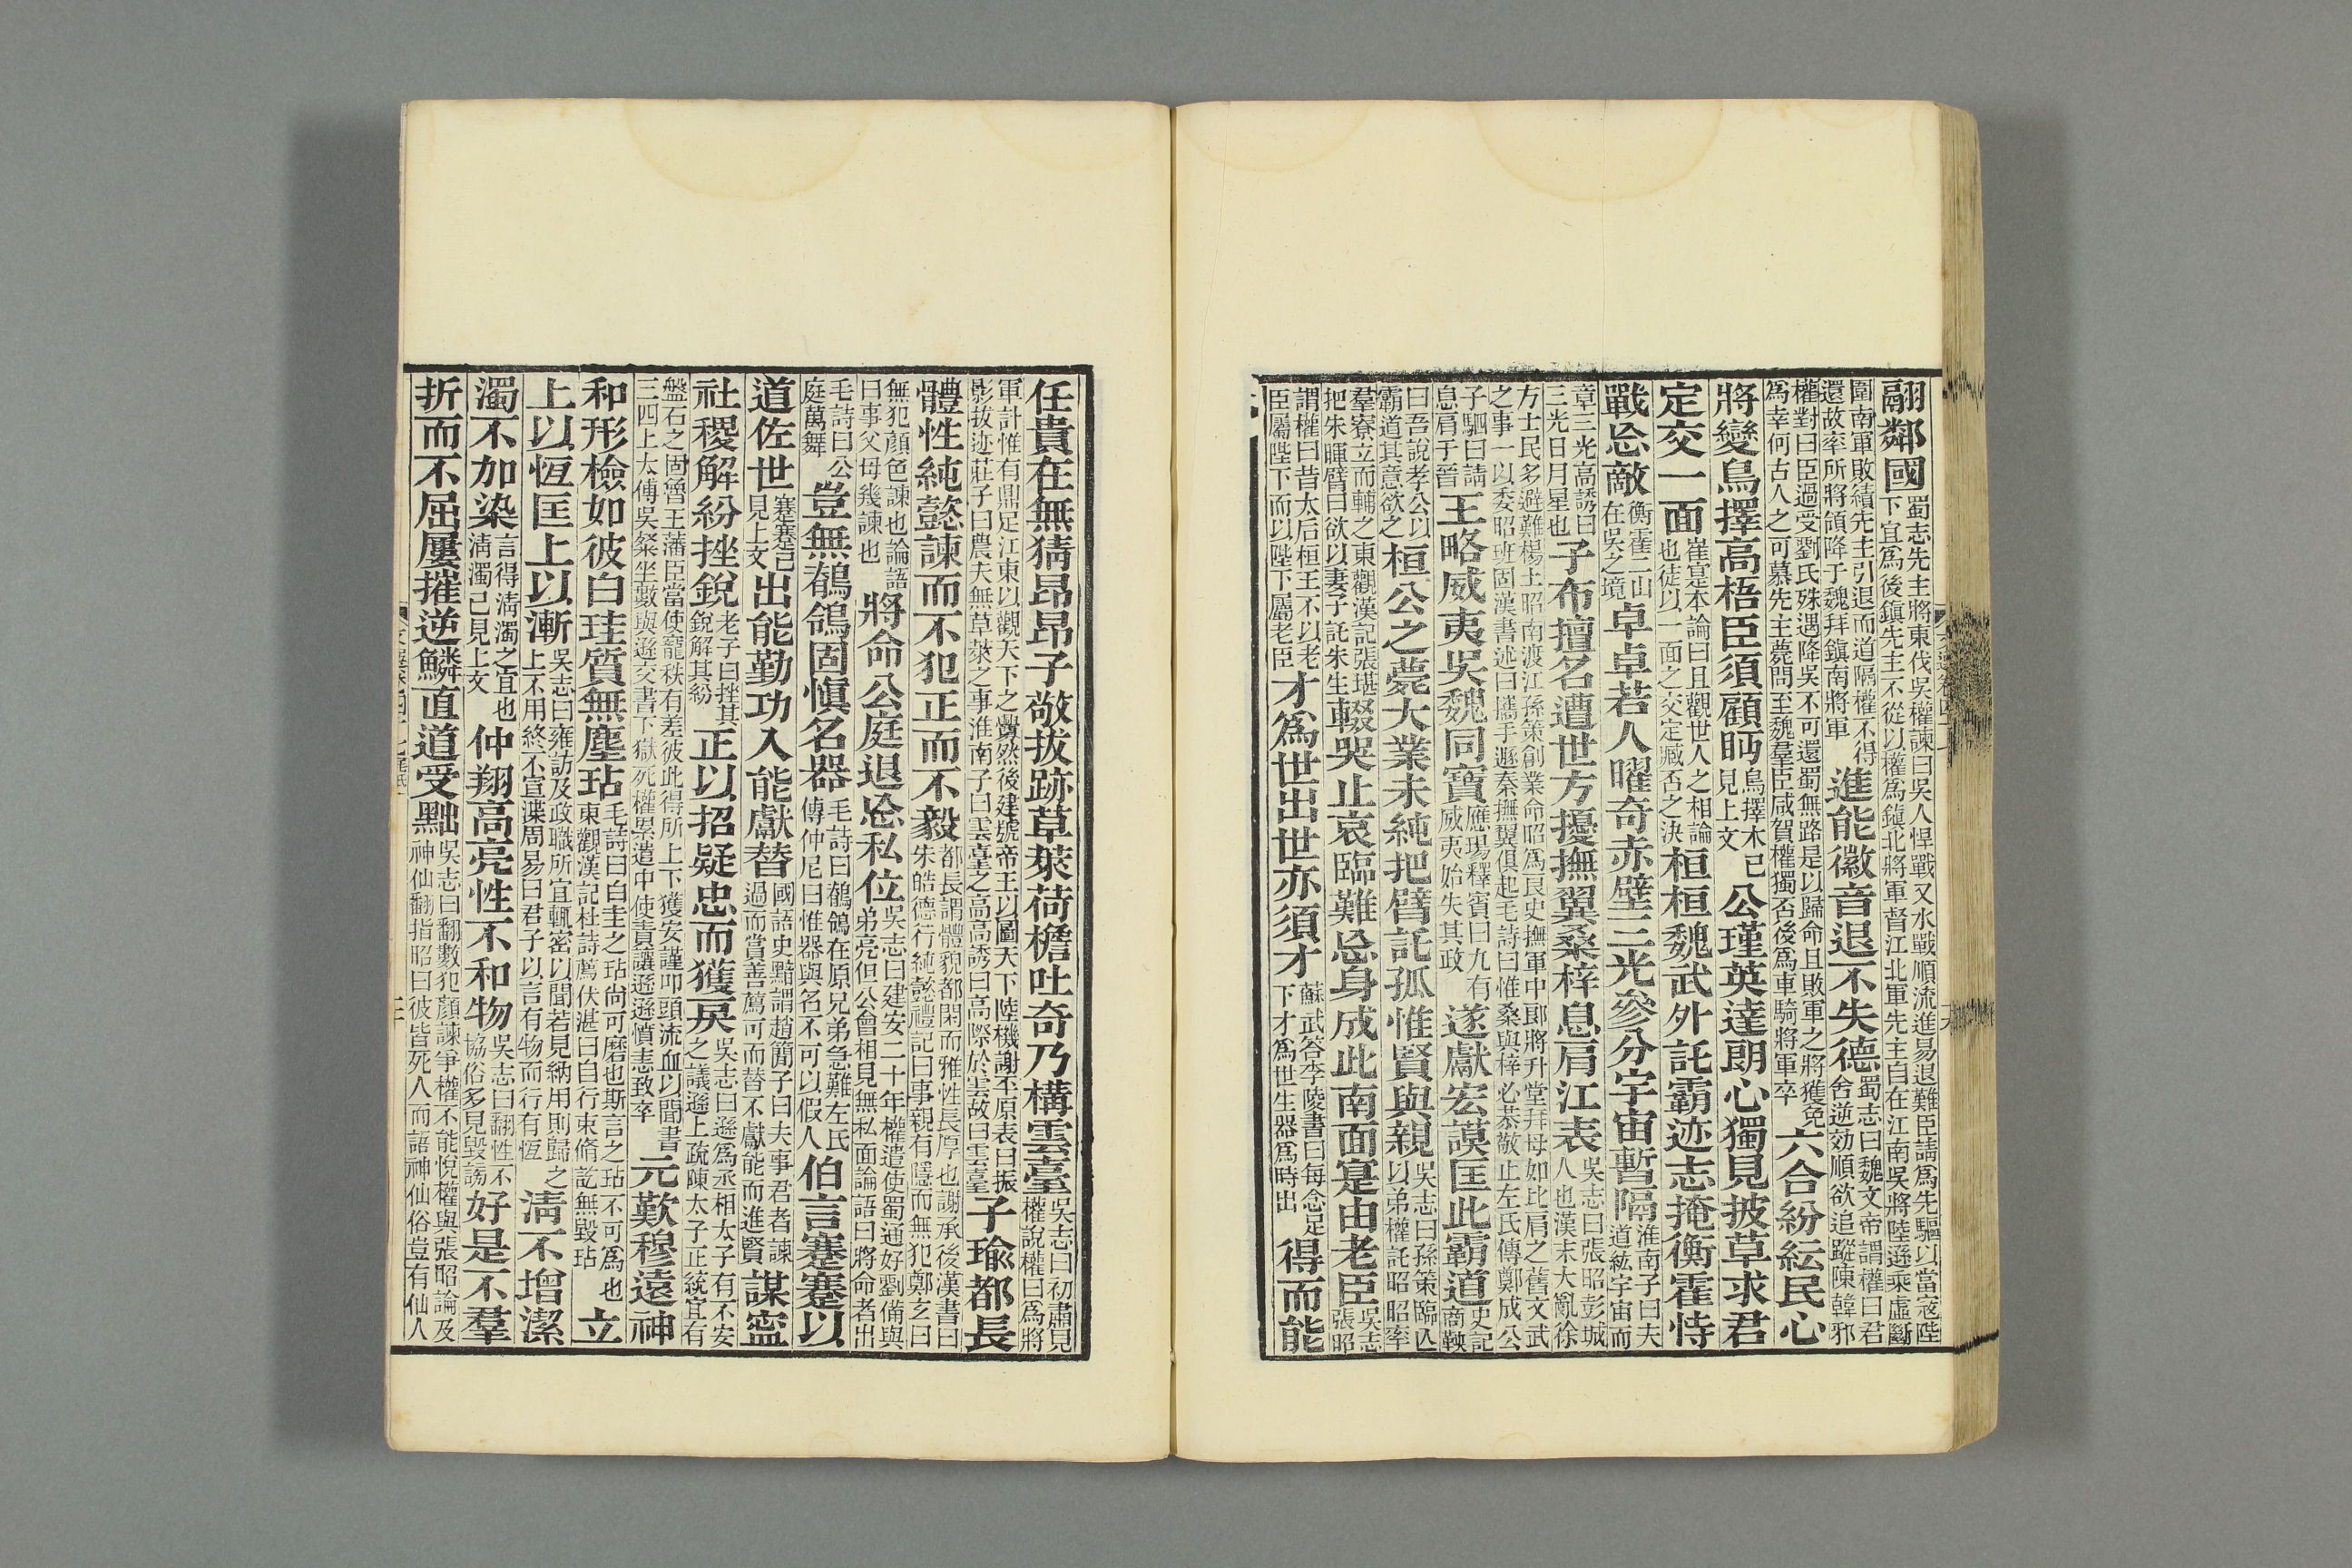 翮鄰國蜀志先主將東伐吳權諫曰吳人悍戰又水戰順流進易退難臣請爲先驅以當寇陛下宜爲後鎮先主不從以權爲鎮北將軍督江北軍先主自在江南吳將陸遜乘虛斷
圍南軍敗績先主引退而道隔權不得還故率所將領降于魏拜鎮南將軍進能徽音退不失德蜀志曰魏文帝謂權曰君舍逆効順欲追蹤陳韓邪
權對曰臣過受劉氏殊遇降吳不可還蜀無路是以歸命且敗軍之將獲免爲幸何古人之可慕先主薨問至魏羣臣咸賀權獨否後爲車騎將軍卒六合紛紜民心
將變鳥擇高梧臣須顧眄鳥擇木已見上文公瑾英達朗心獨見披草求君
定交一面崔寔本論曰且觀世人之相論也徒以一面之交定臧否之決桓桓魏武外託霸迹志掩衡霍恃
戰忘敵衡霍二山在吳之境卓卓若人曜奇赤壁三光參分宇宙暫隔淮南子曰夫道紘宇宙而
章三光高誘曰三光日月星也子布擅名遭世方擾撫翼桑梓息肩江表吳志曰張昭彭城人也漢末大亂徐
方士民多避難楊土昭南渡江孫策創業命昭爲長史撫軍中郎將升堂拜母如比肩之舊文武之事一以委昭班固漢書述曰攜手遯秦撫翼俱起毛詩曰惟桑與梓必恭敬止左氏傳鄭成公
子駟曰請息肩于晉王略威夷吳魏同寶應瑒釋賓曰九有威夷始失其政遂獻宏謨匡此霸道史記商鞅
曰吾說孝公以霸道其意欲之桓公之薨大業未純把臂託孤惟賢與親吳志曰孫策臨亡以弟權託昭昭率
羣寮立而輔之東觀漢記張堪把朱暉臂曰欲以妻子託朱生輟哭止哀臨難忘身成此南面寔由老臣吳志張昭
謂權曰昔太后桓王不以老臣屬陛下而以陛下屬老臣才爲世出世亦須才蘇武荅李陵書曰每念足下才爲世生器爲時出得而能
任貴在無猜昂昂子敬拔跡草萊荷檐吐奇乃構雲臺吳志曰初肅見權說權曰爲將
軍計惟有鼎足江東以觀天下之釁然後建號帝王以圖天下陸機謝平原表曰振影拔迹莊子曰農夫無草萊之事淮南子曰雲臺之高高誘曰高際於雲故曰雲臺子瑜都長
體性純懿諫而不犯正而不毅都長謂體貌都閑而雅性長厚也謝承後漢書曰朱皓德行純懿禮記曰事親有隱而無犯鄭玄曰
無犯顏色諫也論語曰事父母幾諫也將命公庭退忘私位吳志曰建安二十年權遣使蜀通好劉備與弟亮但公會相見無私面論語曰將命者出
毛詩曰公庭萬舞豈無鶺鴒固慎名器毛詩曰鶺鴒在原兄弟急難左氏傳仲尼曰惟器與名不可以假人伯言蹇蹇以
道佐世蹇蹇已見上文出能勤功入能獻替國語史黯謂趙簡子曰夫事君者諫過而賞善薦可而替不獻能而進賢謀寍
社稷解紛挫銳老子曰挫其銳解其紛正以招疑忠而獲戾吳志曰遜爲丞相太子有不安之議遜上疏陳太子正統宜有
盤石之固魯王藩臣當使寵秩有差彼此得所上下獲安謹叩頭流血以聞書三四上太傅吳粲坐數與遜交書下獄死權累遣中使責讓遜遜憤恚致卒元歎穆遠神
和形檢如彼白珪質無塵玷毛詩曰白圭之玷尚可磨也斯言之玷不可爲也東觀漢記杜詩薦伏湛曰自行束脩訖無毀玷立
上以恆匡上以漸吳志曰雍訪及政職所宜輒密以聞若見納用則歸之上不用終不宣渫周易曰君子以言有物而行有恆淸不增潔
濁不加染言得淸濁之宜也淸濁已見上文仲翔高亮性不和物吳志曰翻性不協俗多見毀謗好是不羣
折而不屈屢摧逆鱗直道受黜吳志曰翻數犯顏諫爭權不能悅權與張昭論及神仙翻指昭曰彼皆死人而語神仙俗豈有仙人